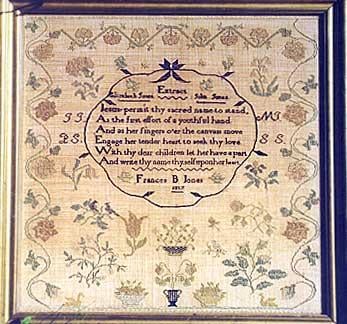 Extract
Elizabeth Jones John Jones
Jesus permit thy sacred name to stand,
As the first effort of a youthful hand
And as her fingers o'er the canvass move
Engage her tender heart to seek thy love
With thy dear children let her have a part
And write thy name thyself upon her heart.
J J M J
R S S S
Frances B Jones